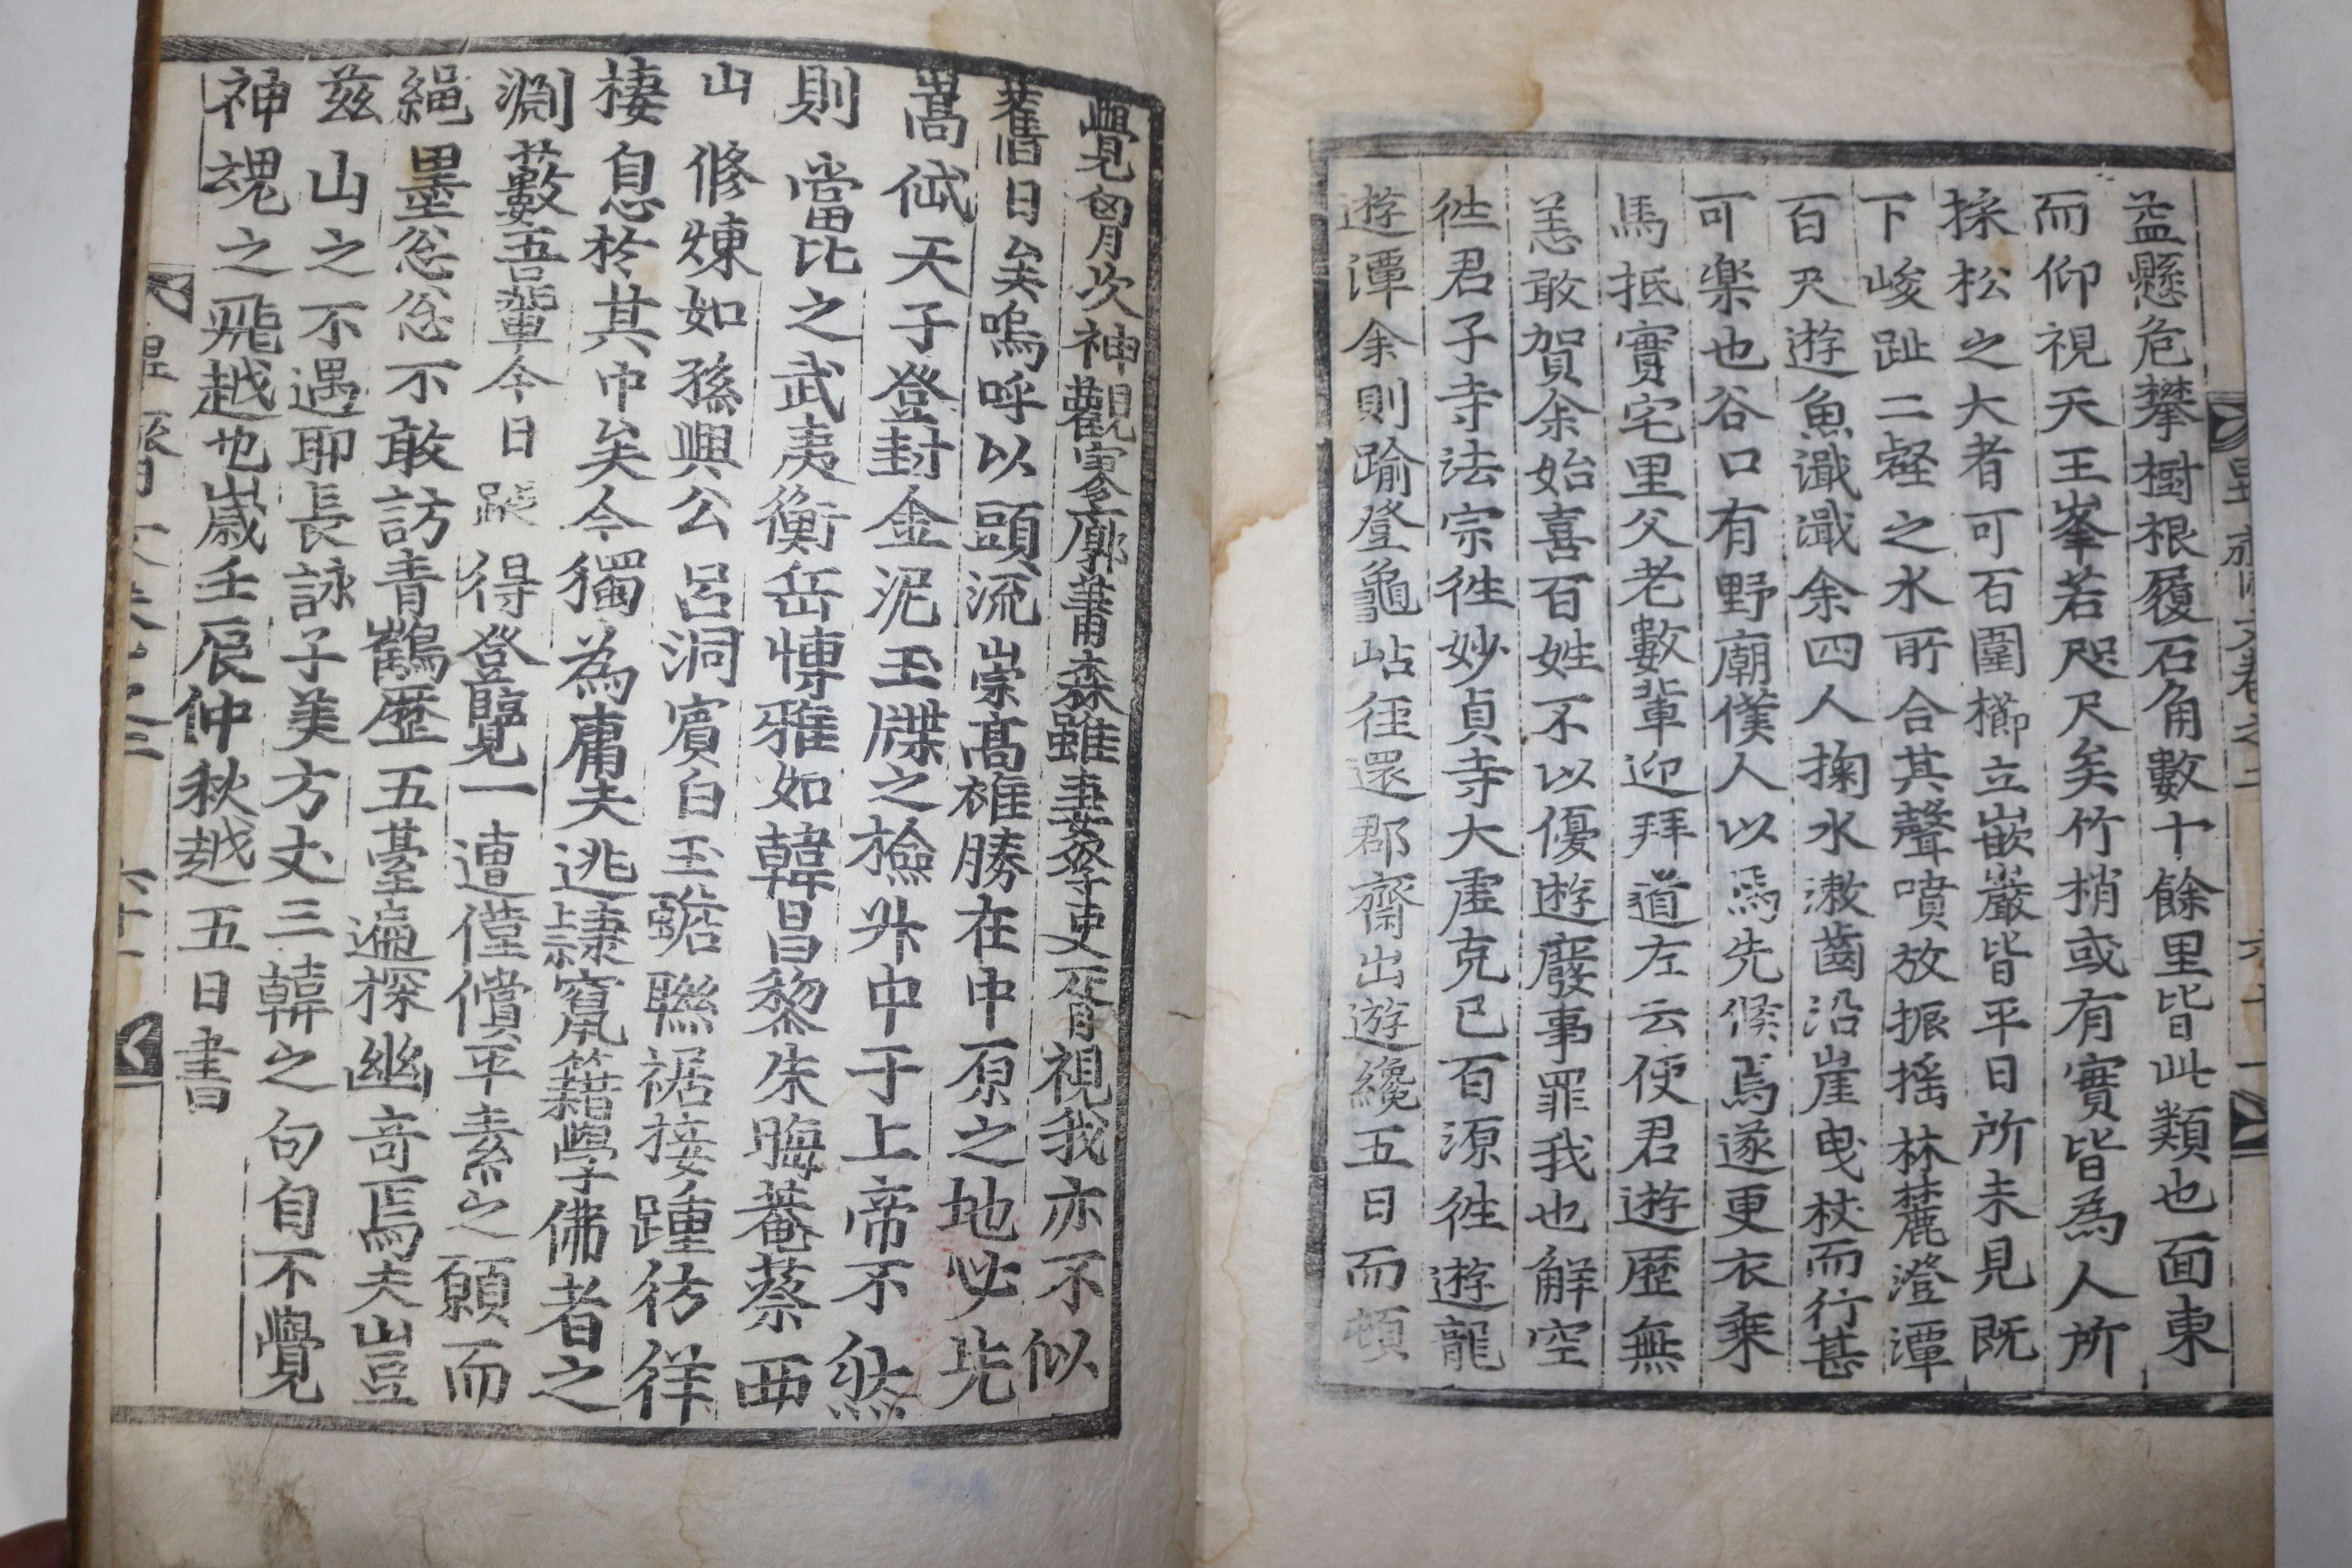 益懸危攀樹根履石角數十餘里皆此類也面東
而仰視天王峯若咫尺矣竹梢或有實皆爲人所
採松之大者可百圍櫛立嵌巖皆平日所未見既
下峻趾二壑之水所合其聲噴放振搖林麓澄潭
百尺遊魚瀺瀺余四人掬水漱齒沿崖曳杖而行甚
可樂也谷口有野廟僕人以馬先候焉遂更衣乘
馬抵實宅里父老數輩迎拜道左云使君遊歷無
恙敢賀余始喜百姓不以優遊廢事罪我也解空
徃君子寺法宗徃妙貞寺大虛克己百源徃遊龍
遊潭余則踰登龜岾徑還郡齋出遊纔五日而頓
覺匈次神觀寥廓蕭森雖妻孥吏胥視我亦不似
舊日矣嗚呼以頭流崇高雄勝在中原之地必先
嵩岱天子登封金泥玉牒之檢升中于上帝不然
則當比之武夷衡岳博雅如韓昌黎朱晦菴蔡西
山修煉如孫興公呂洞賓白玉蟾聯裾接踵彷徉
棲息於其中矣今獨爲庸夫逃隷竄籍學佛者之
淵藪吾輩今日踨得登臨覽一遭僅償平素之願而
繩墨忩忩不敢訪靑鶴歷五臺遍探幽奇焉夫豈
玆山之不遇耶長詠子美方丈三韓之句自不覺
神魂之飛越也歲壬辰仲秋越五日書